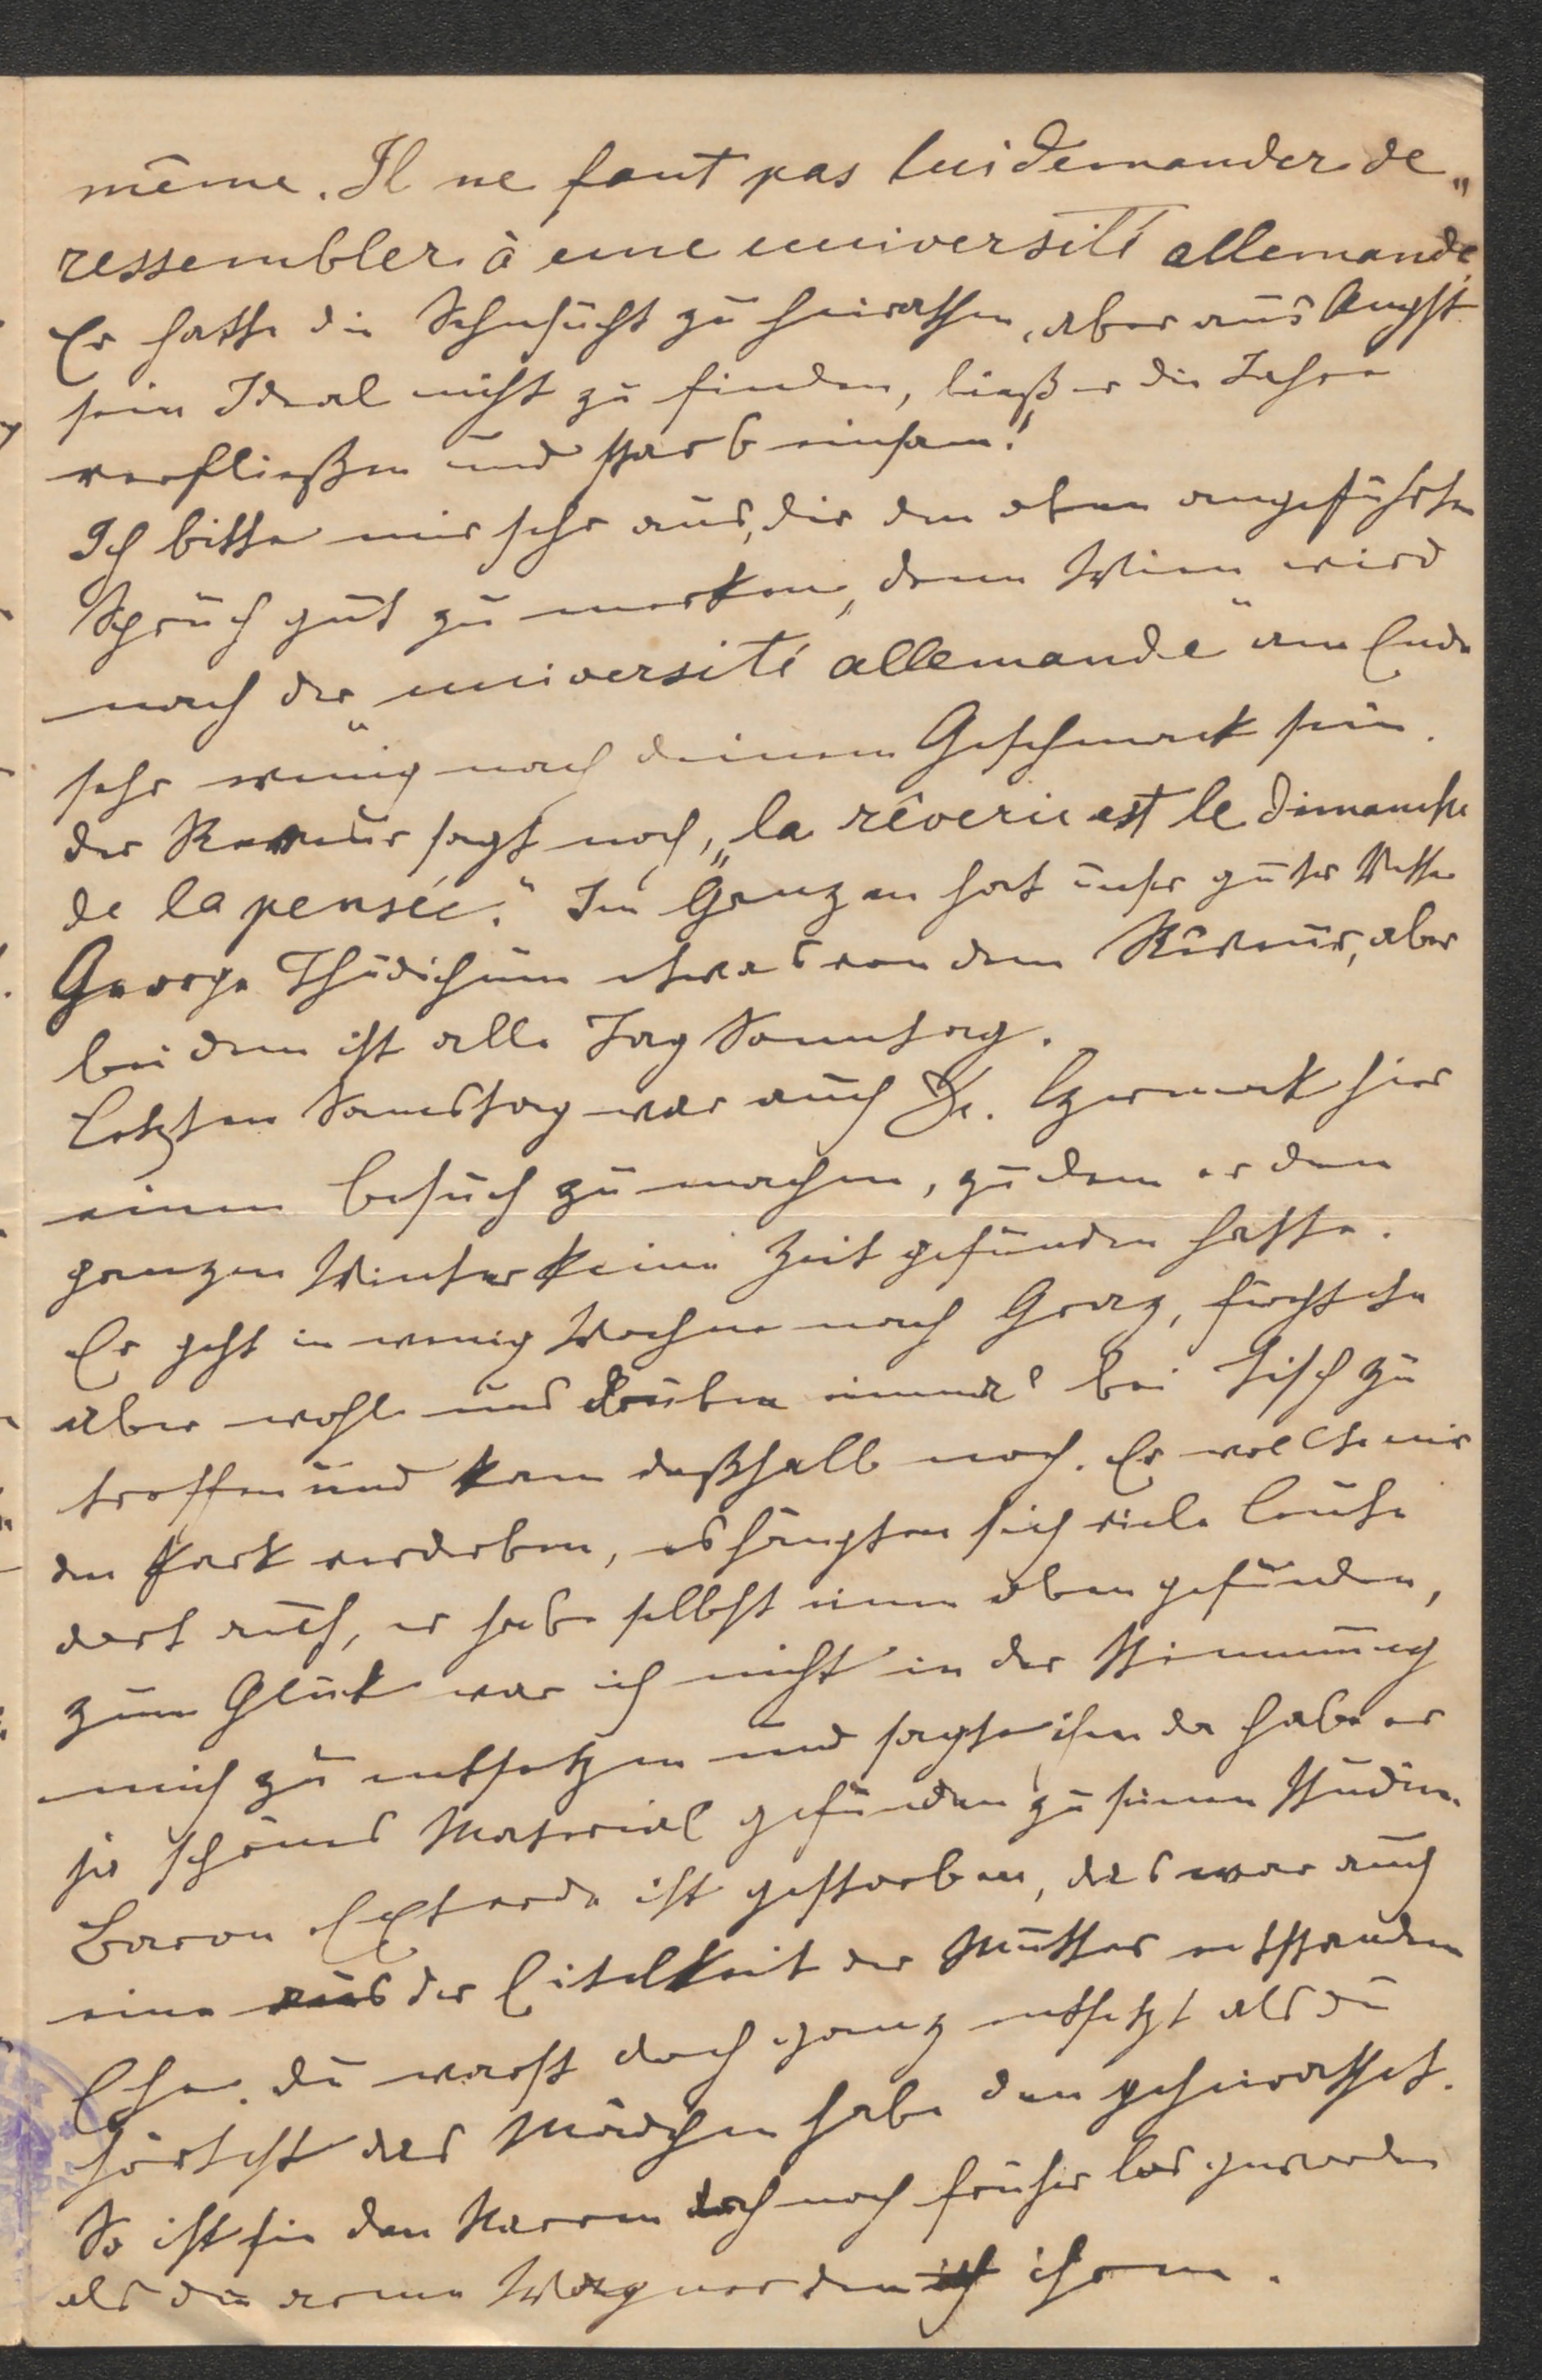 même. Il ne faut pas lui demander de „
ressembler à une université allemande.
Er hatte die Sehnsucht zu heirathen, aber aus Angst
sein Ideal nicht zu finden, ließ er die Jahre
verfließen und starb einsam!
Ich bitte mir sehr aus, dir den oben angeführten
Spruch gut zu merken, denn Wien wird
nach der „université allemande" am Ende
sehr wenig nach deinem Geschmack sein.
der Reveur sagt noch, „la rêverie est le dimanche
de la pensée." Im Ganzen hat unser guter Vetter
George Thudichum etwas von dem Rêveur, aber
bei dem ist alle Tag Sonntag.
Letzten Samstag war auch Dr. Czermak hier
einen Besuch zu machen, zu dem er den
ganzen Winter keine Zeit gefunden hatte.
Er geht in wenig Wochen nach Graz, fürchtete
aber wohl uns drüben einmal bei Tisch zu
treffen und kam deßhalb noch. Er wollte mir
den Park verderben, es hängten sich viele Leute
dort auf, er habe selbst einen oben gefunden,
zum Glück war ich nicht in der Stimmung
mich zu entsetzen und sagte ihm da habe er
ja schönes Material gefunden zu seinen Studien.
Baron Exterde ist gestorben, das war auch
eine aus der Eitelkeit der Mutter entstanden
Ehe. du warst doch ganz entsetzt als du
hörtest das Mädchen habe den geheirathet.
So ist sie den Narren doch noch früher los geworden
als die arme Wagner den ihren.